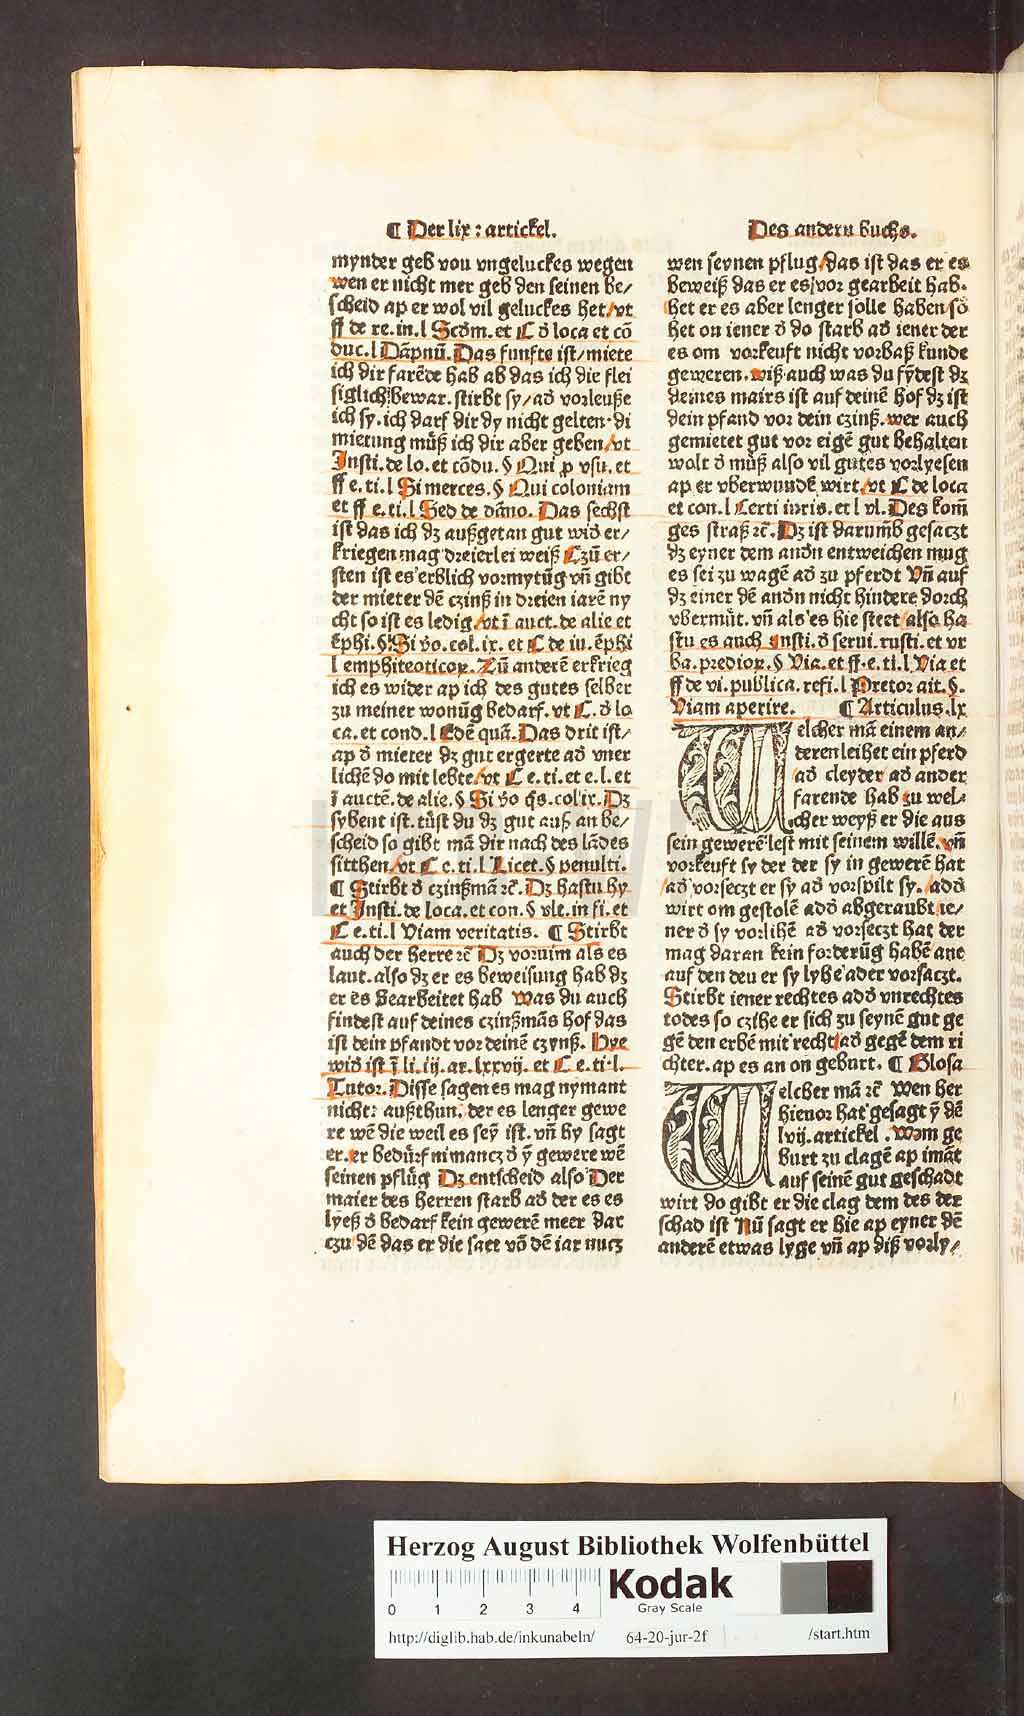 ¶ Der lix : artickel.
Des andern buchs.
mynder geb von vngeluckes wegen
wen er nicht mer geb den seinen be/
scheid ap er wol vil geluckes het/vt
ff de re.in.l Scdm.et C d̄ loca et cō
duc.l Dāpnū. Das funfte ist/miete
ich dir farēde hab ab das ich die flei
siglich bewar. stirbt sy/ad̄ vorleuße
ich sy.ich darf dir dy nicht gelten. di
mietung müß ich dir aber geben/vt
Insti.de lo.et cōdu.§ Qui p vsu.et
ff e.ti.l Si merces.§ Qui coloniam
et ff e.ti.l Sed de dāno. Das sechst
ist das ich dz außgetan gut wid̄ er/
kriegen mag dreierlei weiß Czū er/
sten ist es erblich vormytūg vñ gibt
der mieter dē czinß in dreien iarē ny
cht so ist es ledig/vt ī auct.de alie et
ēphi.§ Si v̄o.col.ix.et C de iu.ēphi
l emphiteoticoꝝ. Zū anderē erkrieg
ich es wider ap ich des gutes selber
zu meiner wonūg bedarf. vt C.d̄ lo
ca.et cond.l Edē quā. Das drit ist/
ap d̄ mieter dz gut ergerte ad̄ vner
lichē do mit lebte/vt C e.ti.et e.l.et
ī auctē.de alie.§ Si v̄o q̄s.col ix. Dz
sybent ist. tüst du dz gut auß an be/
scheid so gibt mā dir nach des lādes
sitthen/vt C e.ti.l Licet.§ penulti.
¶ Stirbt d̄ czinßmā ꝛc̄. Dz hastu hy
et Insti.de loca.et con.§ vle.in fi.et
C e.ti.l Viam veritatis. ¶ Stirbt
auch der herre ꝛc̄ Dz vornim als es
laut.also dz er es beweisung hab dz
er es bearbeitet hab Was du auch
findest auf deines czinßmās hof das
ist dein pfandt vor deinē czynß. Hye
wid̄ ist ī li.iij.ar.lxxvij.et C e.ti.l.
Tutor. Disse sagen es mag nymant
nicht: außthun. der es lenger gewe
re wē die weil es seȳ ist.vñ hy sagt
er.er bedürf nimancz d̄ ȳ gewere wē
seinen pflüg Dz entscheid also Der
maier des herren starb ad̄ der es es
lyeß d̄ bedarf kein gewerē meer dar
czu dē das er die saet vō dē iar nucz
wen seynen pflug/das ist das er es
beweiß das er es vor gearbeit hab.
het er es aber lenger solle haben/so
het on iener d̄ do starb ad̄ iener der
es om vorkeuft nicht vorbaß kunde
geweren. wiß auch was du fȳdest dz
deines mairs ist auf deinē hof dz ist
dein pfand vor dein czinß.wer auch
gemietet gut vor eigē gut behalten
wolt d̄ müß also vil gutes vorlyesen
ap er vberwundē wirt/vt C de loca
et con.l Certi iuris.et l vl. Des kom̄
ges straß ꝛc̄. Dz ist darum̄b gesaczt
dz eyner dem and̄n entweichen mug
es sei zu wagē ad̄ zu pferdt Vñ auf
dz einer dē and̄n nicht hindere dorch
vbermůt. vñ als es hie steet/also ha
stu es auch Insti.d̄ serui.rusti.et vr
ba.predioꝝ.§ Via.et ff.e.ti.l Via et
ff de vi.publica.refi.l Pretor ait.§.
Viam aperire. ¶ Articulus.lx
Welcher mā einem an/
deren leihet ein pferd
ad̄ cleyder/ad̄ ander
farende hab zu wel/
cher weyß er die aus
sein gewerē lest mit seinem willē.vñ
vorkeuft sy der der sy in gewerē hat
/ad̄ vorseczt er sy ad̄ vorspilt sy./ad̄d̄
wirt om gestolē ad̄d̄ abgeraubt/ie/
ner d̄ sy vorlihē ad̄ vorseczt hat der
mag daran kein forderūg habē ane
auf den deu er sy lyhe ader vorsaczt.
Stirbt iener rechtes ad̄d̄ vnrechtes
todes so czihe er sich zu seynē gut ge
gē den erbē mit recht/ad̄ gegē dem ri
chter.ap es an on geburt. ¶ Glosa
Welcher mā ꝛc̄ Wen her
hienor hat gesagt ȳ dē
lvij.artickel. Wom ge
burt zu clagē ap imāt
auf seinē gut geschadt
wirt do gibt er die clag dem des der
schad ist Nū sagt er hie ap eyner dē
anderē etwas lyge vñ ap diß vorly/
Herzog August Bibliothek Wolfenbüttel
Kodak
Gray Scale
0 1 2 3 4
http://diglib.hab.de/inkunabeln/ 64-20-jur-2f /start.htm